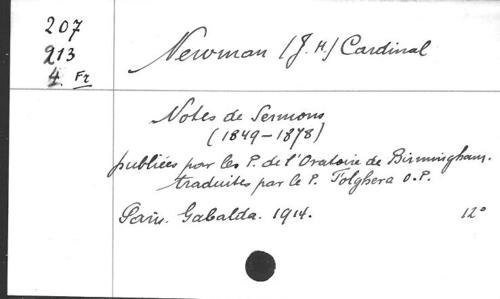 207
213
4. Fr
Newman (J. H.) Cardinal
Notes de Sermons
(1849-1878)
publiées par les P. de l'Oratoire de Birmingham.
traduites par le P. Folghera O.P.
Paris. Gabalda. 1914. 12°